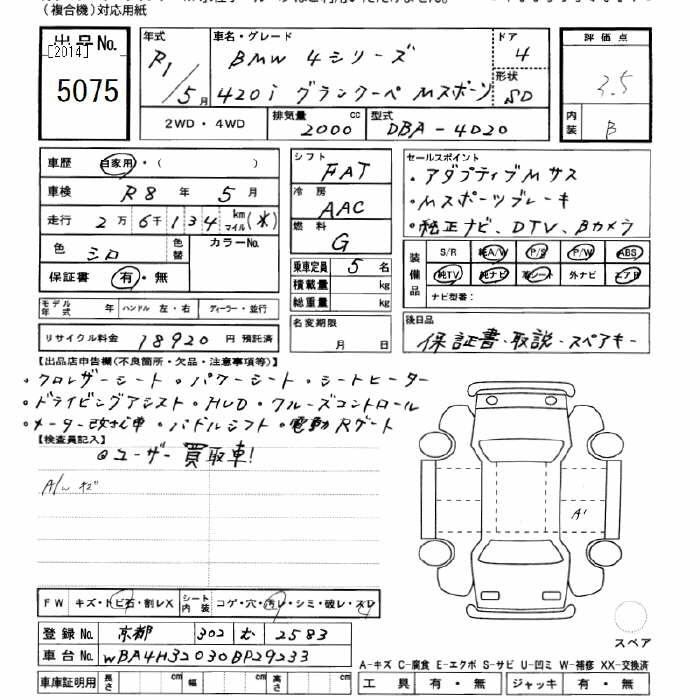 (複合機)対応用紙
出品No.
[2014]
5075
年式 R1/5月
車名・グレード BMW 4シリーズ
420i グランクーペ Mスポーツ
ドア 4
形状 SD
2WD・4WD
排気量 2000 cc
型式 DBA-4D20
評価点
3.5
内装 B
車歴 自家用・( )
車検 R8年 5月
走行 2万6千134 km マイル (水)
色 シロ 色替
カラーNo.
保証書 有・無
モデル年式 年 ハンドル 左・右 ディーラー・並行
リサイクル料金 18920 円 預託済
シフト FAT
冷房 AAC
燃料 G
乗車定員 5名
積載量 kg
総重量 kg
名変期限 月 日
セールスポイント
・アダプティブMサス
・Mスポーツブレーキ
・純正ナビ、DTV、Bカメラ
装備品 S/R 純A/W P/S P/W ABS
純TV 純ナビ 革シート 外ナビ エアB
ナビ型番:
後日品
保証書・取説・スペアキー
【出品店申告欄(不良箇所・欠品・注意事項等)】
・クロレザーシート・パワーシート・シートヒーター
・ドライビングアシスト・HUD・クルーズコントロール
・メーター改ざん車・パドルシフト・電動Rゲート
【検査員記入】
@ユーザー買取車!
A/w キズ
A1
FW キズ・トビ石・割レX
シート内装 コゲ・穴・汚レ・シミ・破レ・スレ
登録No. 京都 302 む 2583
車台No. WBA4H32030BP29233
車庫証明用 長さ cm 幅 cm 高さ cm
スペア
A-キズ C-腐食 E-エクボ S-サビ U-凹ミ W-補修 XX-交換済
工具 有・無 ジャッキ 有・無